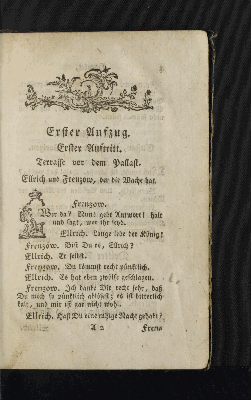 Erster Aufzug.
Erster Auftritt.
Terrasse vor dem Pallast.
Ellrich und Frenzow, der die Wache hat.
Frenzow.
Wer da? Nein: gebt Antwort! halt
und sagt, wer ihr seyd.
Ellrich. Lange lebe der König!
Frenzow. Bist Du es, Ellrich?
Ellrich. Er selbst.
Frenzow. Du kömmst recht pünktlich.
Ellrich. Es hat eben zwölfe geschlagen.
Frenzow. Ich danke Dir recht sehr, daß
Du mich so pünktlich ablösest; es ist bitterlich
kalt, und mir ist gar nicht wohl.
Ellrich. Hast Du eine ruhige Nacht gehabt?
A 2 Frenz